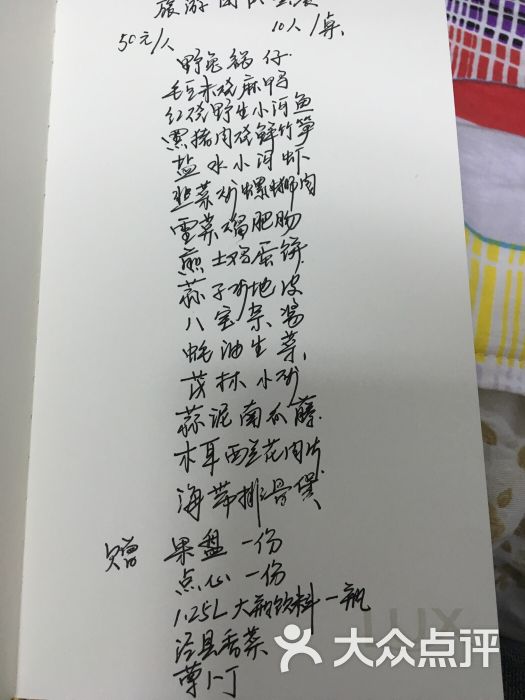 旅游团队
50元/人 10人/桌
野兔锅仔
毛豆米烧麻鸭
红烧野生小河鱼
黑猪肉烧鲜竹笋
盐水小河虾
韭菜炒螺蛳肉
雪菜焖肥肠
煎土鸡蛋饼
蒜子炒地皮
八宝杂酱
蚝油生菜
茂林小炒
蒜泥南瓜藤
木耳西兰花肉片
海带排骨煲
赠 果盘一份
点心一份
1.25L大瓶饮料一瓶
泾县香菜
萝卜丁
LUX
大众点评